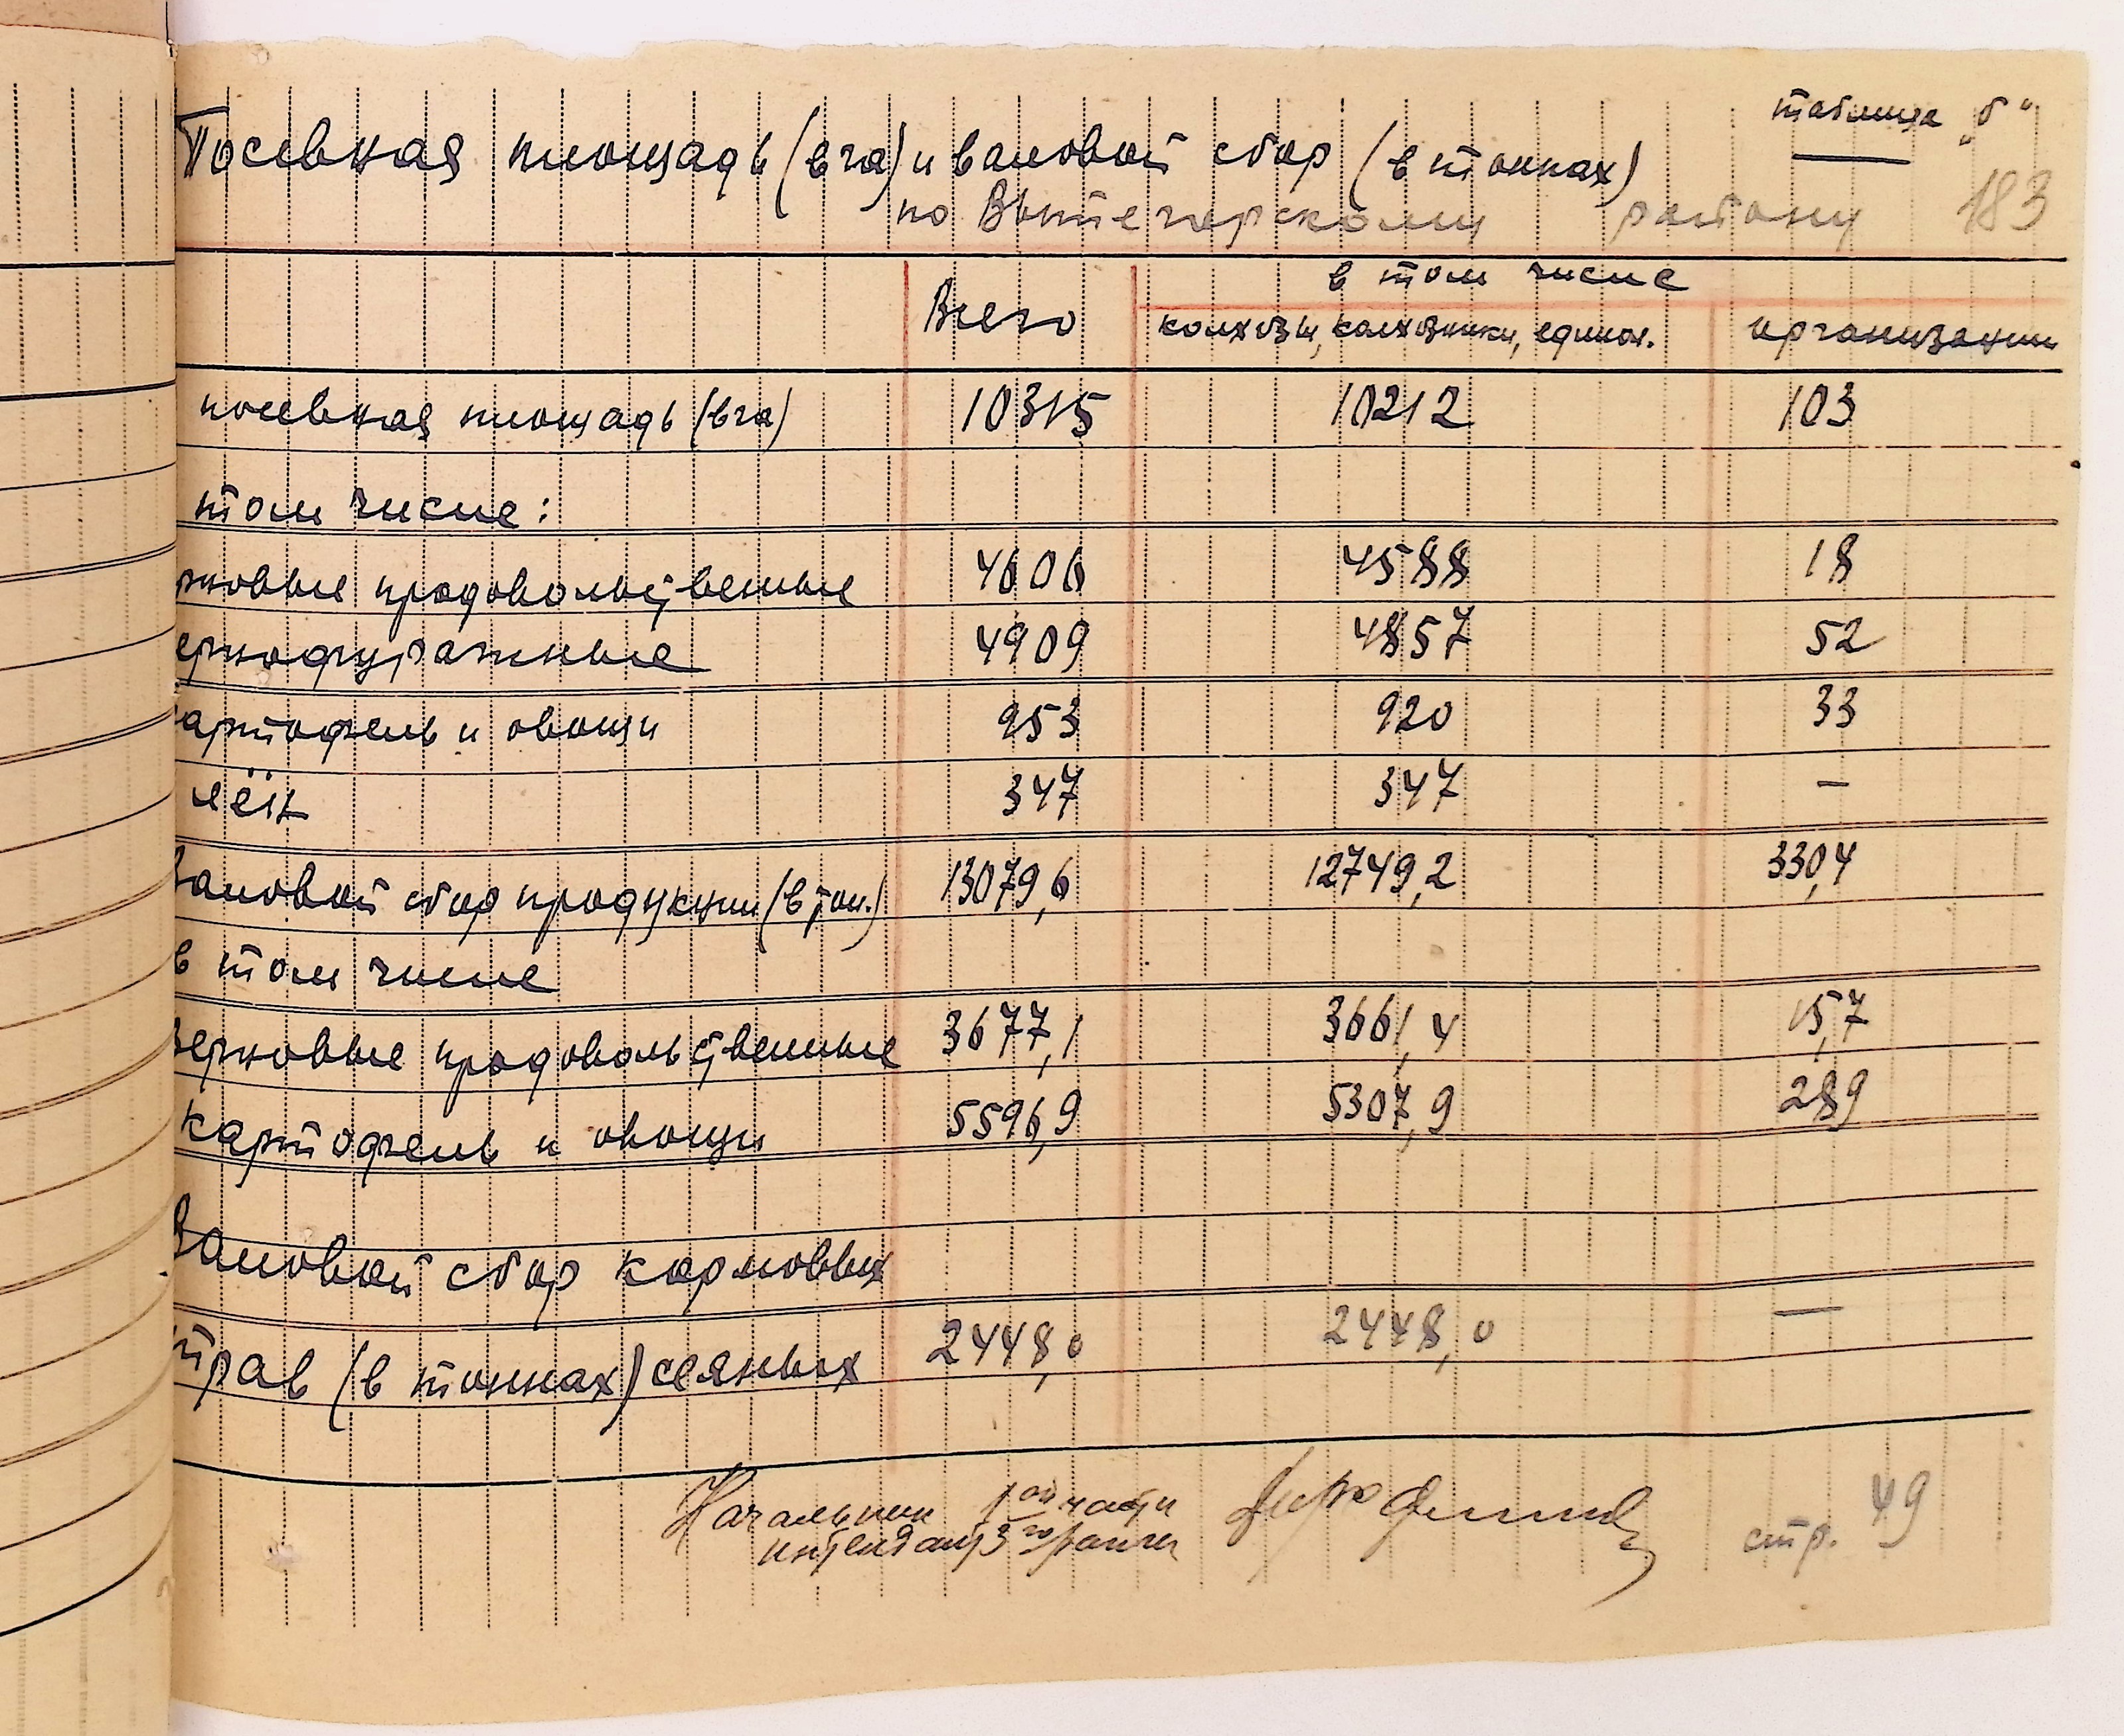 таблица „б“
Посевная площадь (в га) и валовой сбор (в тоннах)
по Вытегорскому району 183
Всего в том числе
колхозы, колхозники, единол. организации
посевная площадь (в га) 10315 10212 103
том числе:
рновые продовольственные 4606 4588 18
ернофуражные 4909 4857 52
артофель и овощи 953 920 33
лён 347 347 —
Валовой сбор продукции (в тон.) 13079,6 12749,2 330,4
в том числе
Зерновые продовольственные 3677,1 3661,4 15,7
картофель и овощи 5596,9 5307,9 289
Валовой сбор кормовых
трав (в тоннах) сеяных 2448,0 2448,0 —
Начальник райчасти
интендант 3го ранга
стр. 49